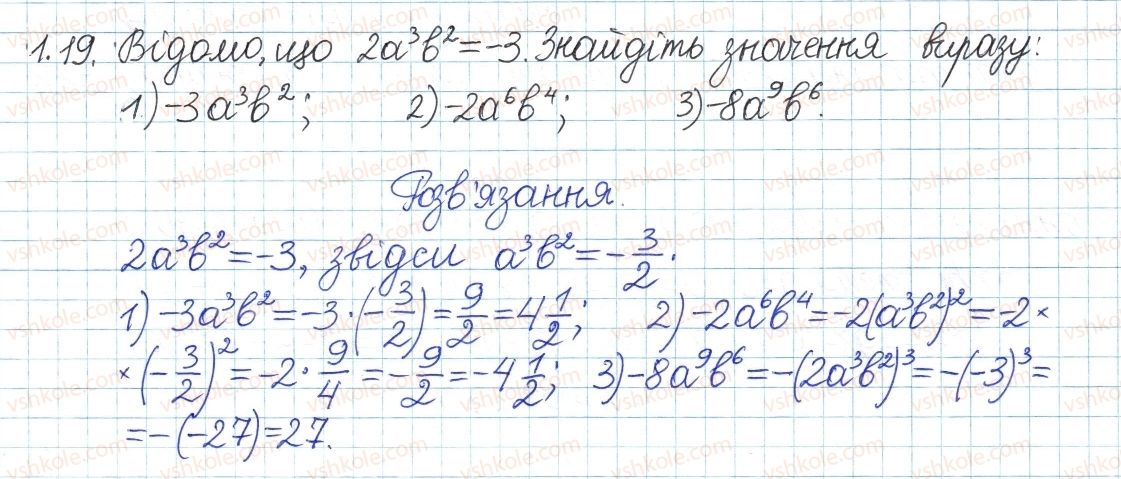 1.19. Відомо, що 2a³b² = -3. Знайдіть значення виразу:
1) -3a³b²; 2) -2a⁶b⁴; 3) -8a⁹b⁶.
Розв'язання.
2a³b² = -3, звідси a³b² = -3/2.
1) -3a³b² = -3·(-3/2) = 9/2 = 4 1/2; 2) -2a⁶b⁴ = -2(a³b²)² = -2 ×
× (-3/2)² = -2 · 9/4 = -9/2 = -4 1/2; 3) -8a⁹b⁶ = -(2a³b²)³ = -(-3)³ =
= -(-27) = 27.